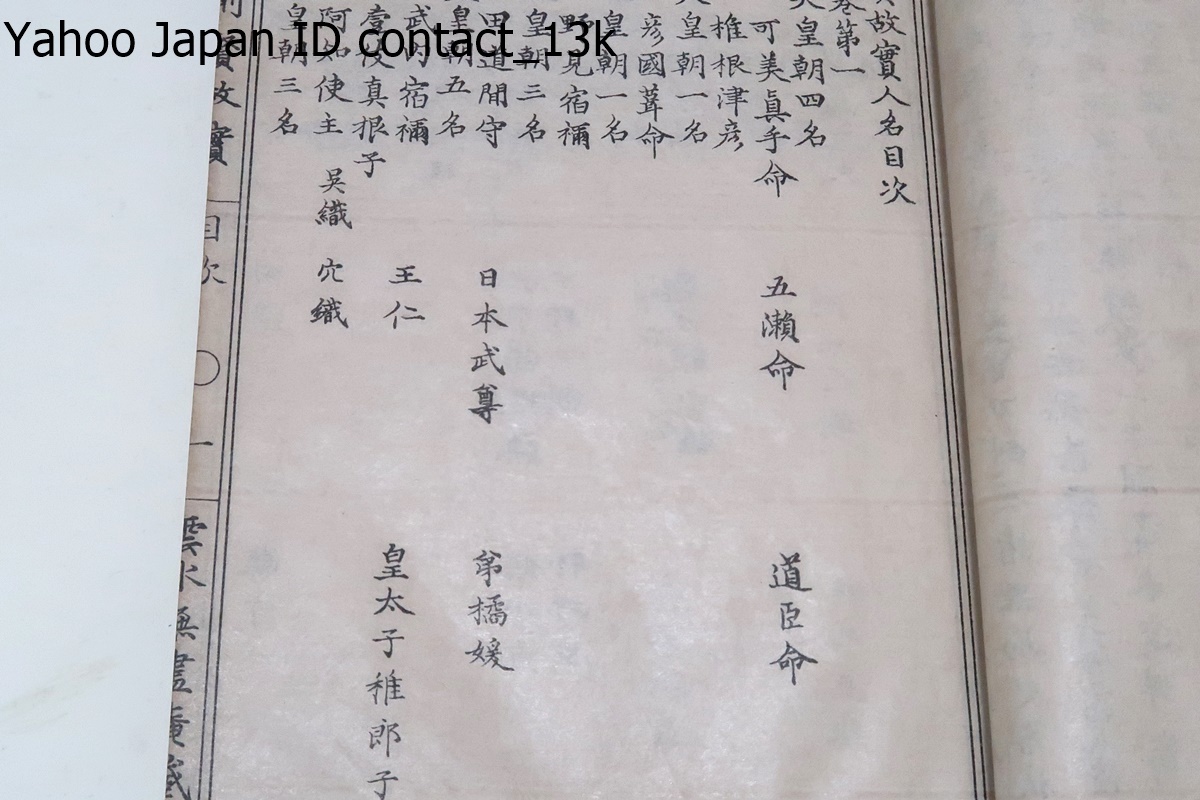 Yahoo Japan ID contact_13k
故實人名目次
卷第一
皇朝四名
可美眞手命 五瀨命 道臣命
椎根津彦
皇朝一名
彦國葺命
皇朝一名
野見宿禰
皇朝三名
田道間守 日本武尊 弟橘媛
皇朝五名
武内宿禰 王仁 皇太子稚郎子
眞根子
阿知使主 吳織 穴織
皇朝三名
故實 目次 〇 一 雲水無盡庵藏